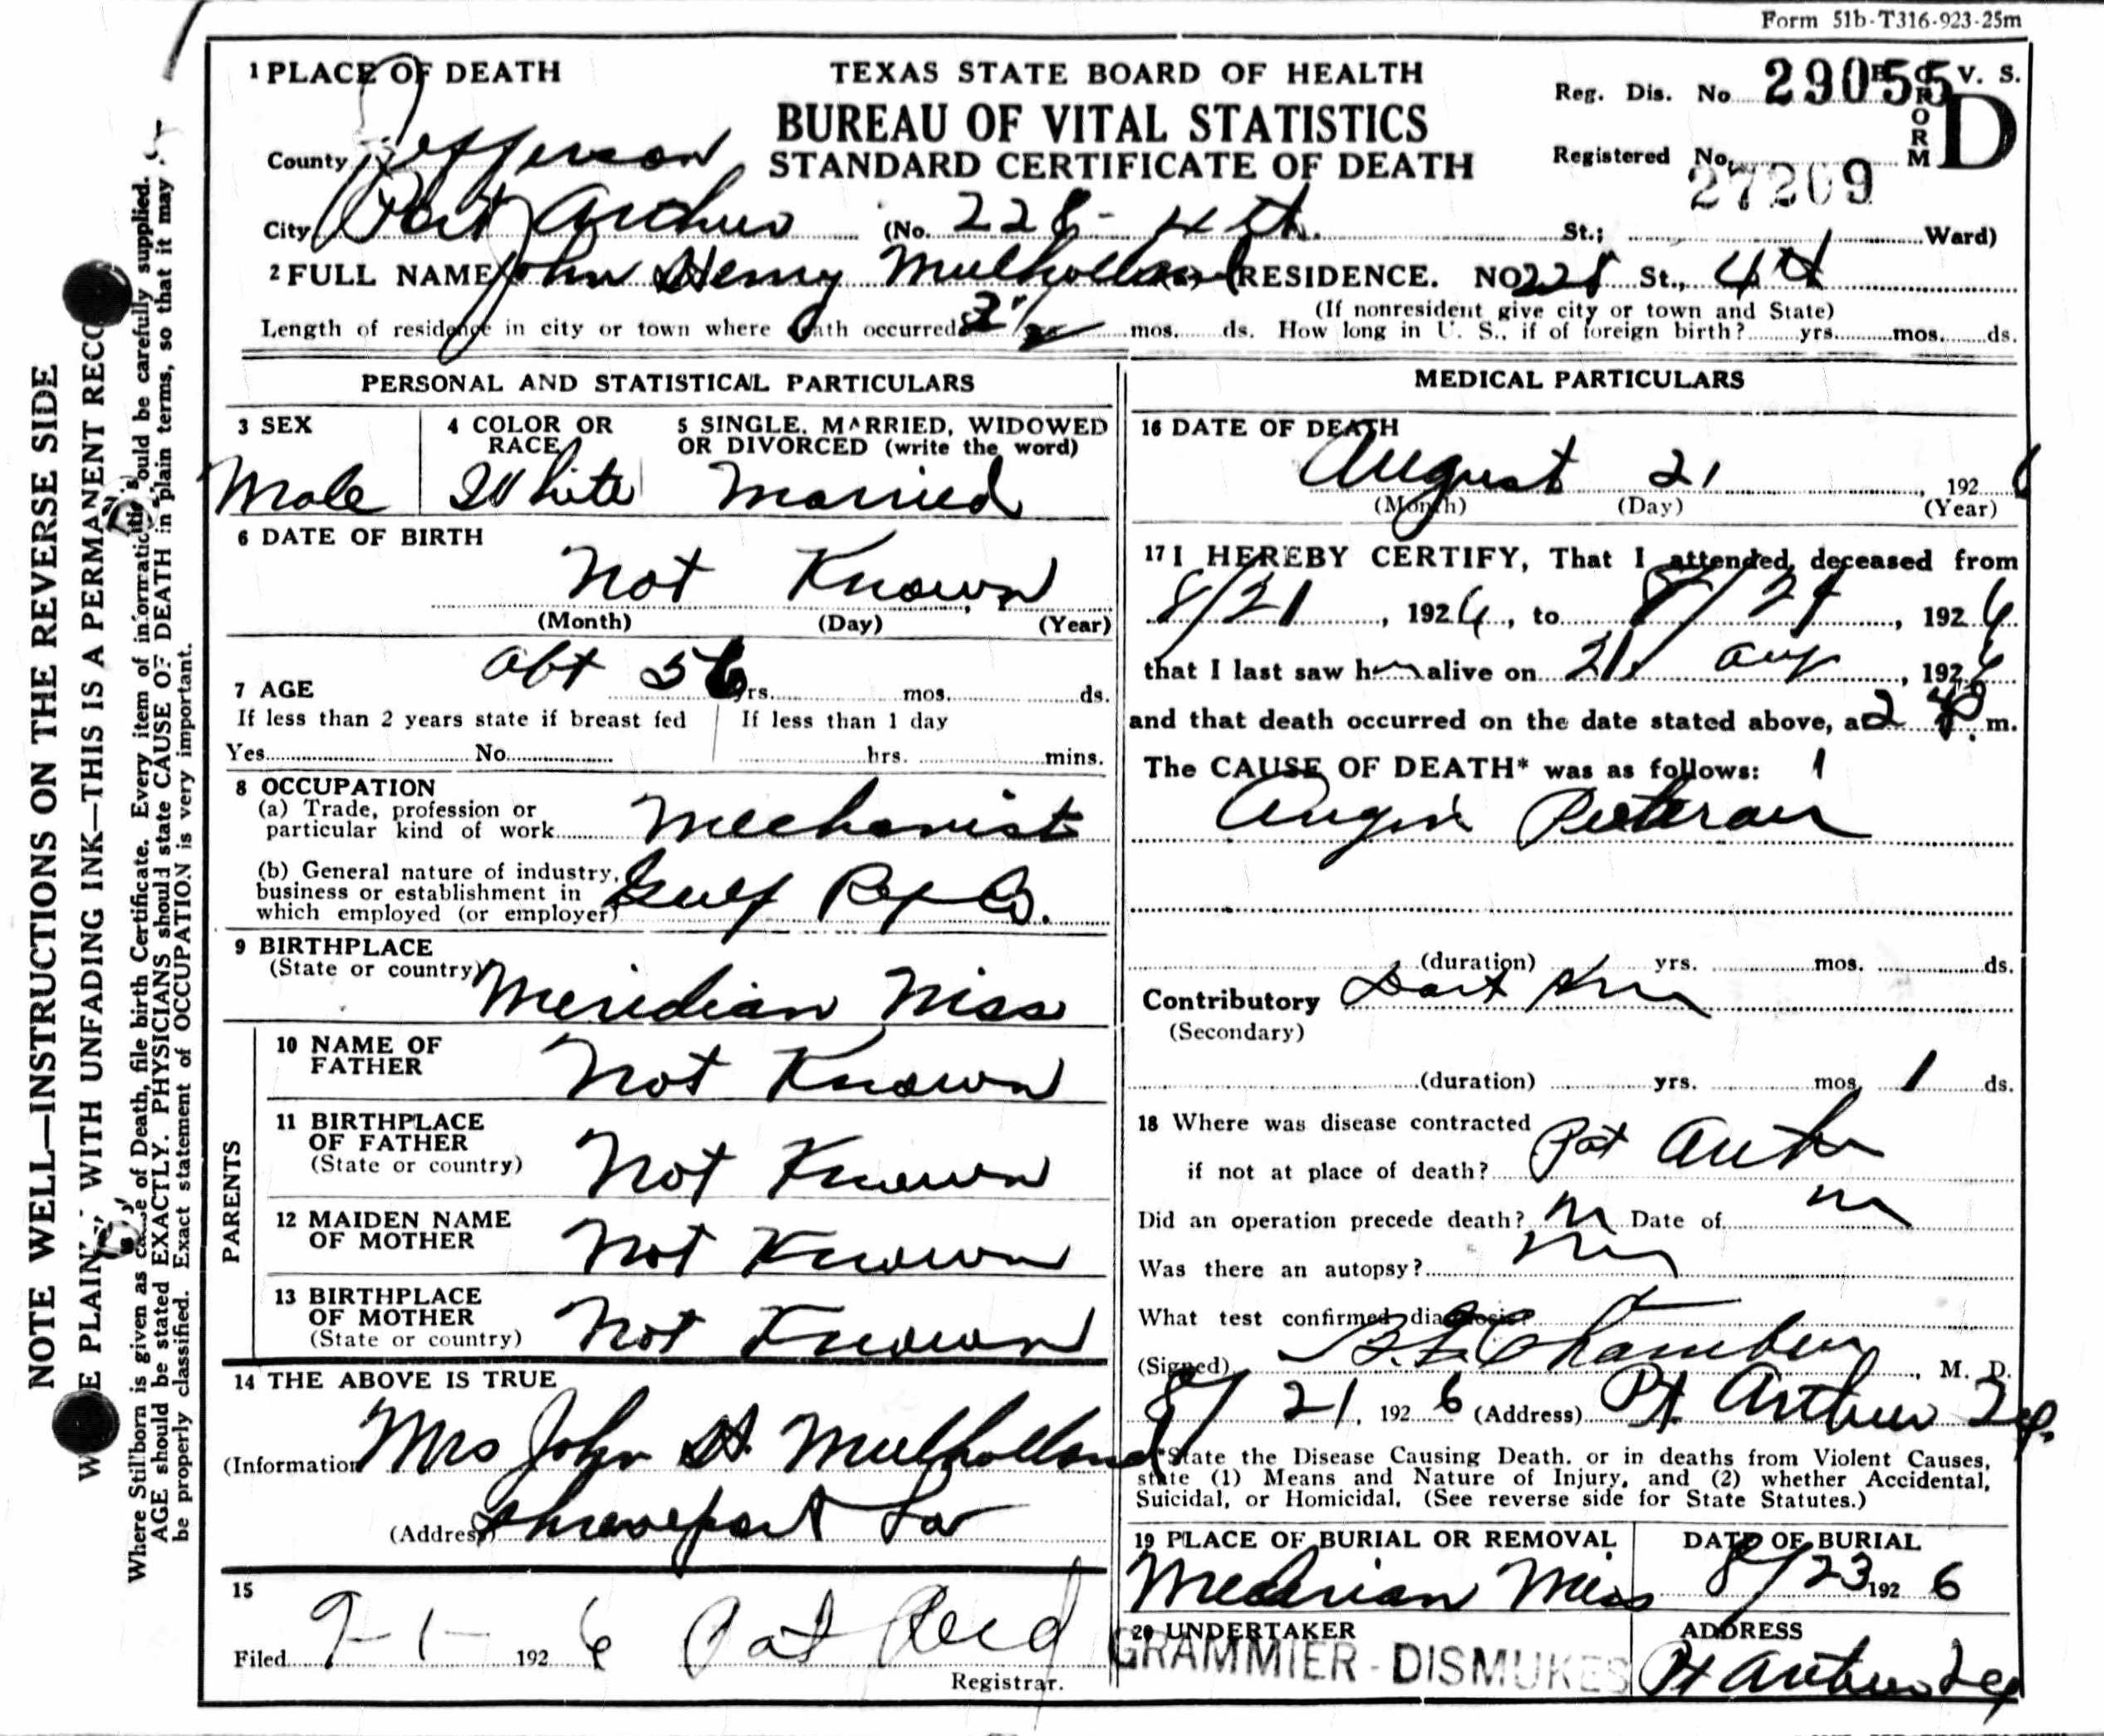 Form 51b-T316-923-25m
1 PLACE OF DEATH
TEXAS STATE BOARD OF HEALTH
BUREAU OF VITAL STATISTICS
STANDARD CERTIFICATE OF DEATH
Reg. Dis. No. 29055 V. S.
FORM D
Registered No. 27209
County Jefferson
City Port Arthur (No. 228 - 4th. St.; Ward)
2 FULL NAME John Henry Mulholland RESIDENCE. NO 228 St., 4th
(If nonresident give city or town and State)
Length of residence in city or town where death occurred mos. ds. How long in U. S., if of foreign birth? yrs. mos. ds.
PERSONAL AND STATISTICAL PARTICULARS
3 SEX
Male
4 COLOR OR RACE
White
5 SINGLE, MARRIED, WIDOWED
OR DIVORCED (write the word)
Married
6 DATE OF BIRTH
Not Known
(Month) (Day) (Year)
7 AGE abt 56 yrs. mos. ds.
If less than 2 years state if breast fed
Yes No
If less than 1 day
hrs. mins.
8 OCCUPATION
(a) Trade, profession or
particular kind of work Mechanist
(b) General nature of industry,
business or establishment in
which employed (or employer) Gulf Rf Co.
9 BIRTHPLACE
(State or country) Meridian Miss
PARENTS
10 NAME OF
FATHER Not Known
11 BIRTHPLACE
OF FATHER
(State or country) Not Known
12 MAIDEN NAME
OF MOTHER Not Known
13 BIRTHPLACE
OF MOTHER
(State or country) Not Known
14 THE ABOVE IS TRUE
(Information Mrs John H. Mulholland
(Address) Shreveport La
15
Filed 9-1- 1926 Pat Reed
Registrar.
MEDICAL PARTICULARS
16 DATE OF DEATH
August 21, 1926
(Month) (Day) (Year)
17 I HEREBY CERTIFY, That I attended deceased from
8/21, 1926, to 8/21, 1926
that I last saw him alive on 21 Aug, 1926
and that death occurred on the date stated above, at 2 40 m.
The CAUSE OF DEATH* was as follows:
Angin Pectoris
(duration) yrs. mos. ds.
Contributory
(Secondary)
(duration) yrs. mos. 1 ds.
18 Where was disease contracted
if not at place of death? Port Arthur
Did an operation precede death? no Date of no
Was there an autopsy? no
What test confirmed diagnosis?
(Signed) Chambers, M. D.
8/21, 1926 (Address) Pt Arthur Tex.
*State the Disease Causing Death, or in deaths from Violent Causes,
state (1) Means and Nature of Injury, and (2) whether Accidental,
Suicidal, or Homicidal. (See reverse side for State Statutes.)
19 PLACE OF BURIAL OR REMOVAL
Meridian Miss
DATE OF BURIAL
8/23 1926
20 UNDERTAKER
GRAMMIER - DISMUKES
ADDRESS
Pt Arthur Tex
NOTE WELL—INSTRUCTIONS ON THE REVERSE SIDE
WITH UNFADING INK—THIS IS A PERMANENT
Where Stillborn is given as cause of Death, file birth Certificate. Every item of information should be carefully supplied.
AGE should be stated EXACTLY. PHYSICIANS should state CAUSE OF DEATH in plain terms, so that it may
be properly classified. Exact statement of OCCUPATION is very important.